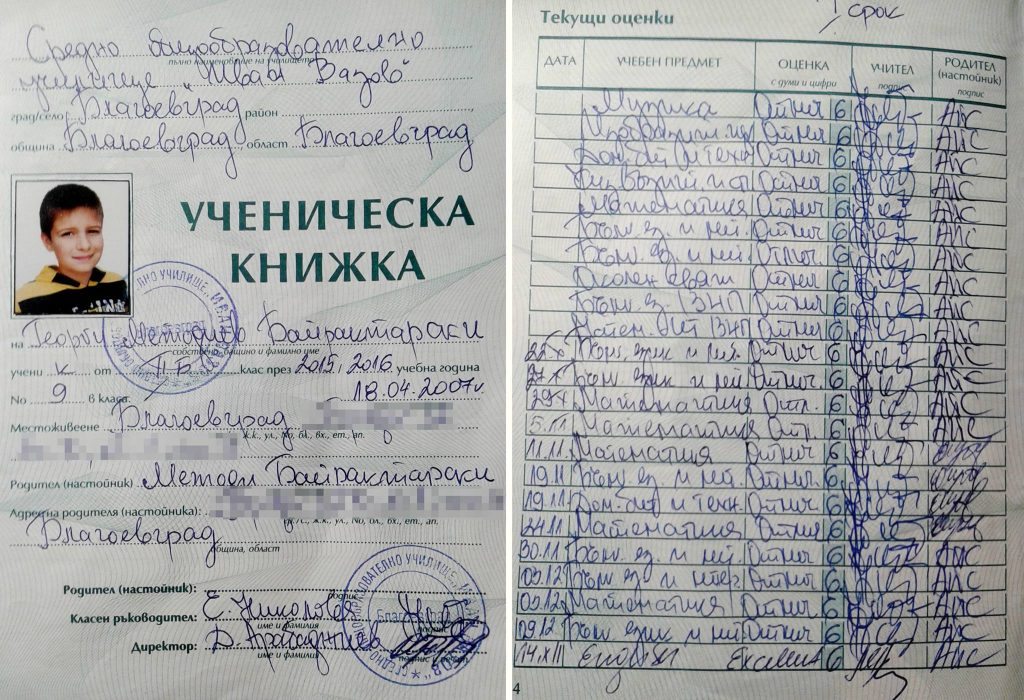 Средно общообразователно
пълно наименование на училището
училище "Иван Вазов"
град/село Благоевград район
община Благоевград, област Благоевград
УЧЕНИЧЕСКА
КНИЖКА
на Георги Методиев Байрактарски
собствено, бащино и фамилно име
учени к от II Б клас през 2015/2016 учебна година
No 9 в класа. 18.04.2007г
Местоживеене Благоевград
ж.к., ул., No, бл., вх., ет., ап.
Родител (настойник) Методи Байрактарски
Адрес на родителя (настойника):
ж.к., ул., No, бл., вх., ет., ап.
Благоевград
община, област
Родител (настойник):
подпис
Класен ръководител: Е. Николова
име и фамилия
подпис
Директор:
име и фамилия
подпис и печат
I срок
Текущи оценки
ДАТА УЧЕБЕН ПРЕДМЕТ ОЦЕНКА УЧИТЕЛ РОДИТЕЛ
с думи и цифри подпис (настойник)
подпис
Музика Отлич 6
Отлич 6
Дом. бит и техн Отлич 6
Физ. възпит. и сп Отлич 6
Математика Отлич 6
Бълг. ез. и лит. Отлич 6
Бълг. ез. и лит Отлич. 6
Околен свят Отлич 6
Бълг. ез. Отлич 6
Матем. Отлич 6
Бълг. език и лит. Отлич 6
Бълг. език и лит Отлич 6
Математика Отл. 6
5.11 Математика Отл. 6
11.11 Математика Отлич 6
19.11 Бълг. ез. и лит. Отлич 6
19.11 Дом. бит и техн. Отлич 6
24.11 Математика Отлич 6
30.11 Бълг. ез. и лит. Отлич 6
03.12 Бълг ез и лит Отлич 6
03.12 Математика Отлич 6
09.12 Бълг език и лит Отлич 6
14.XII English Excellent 6
4